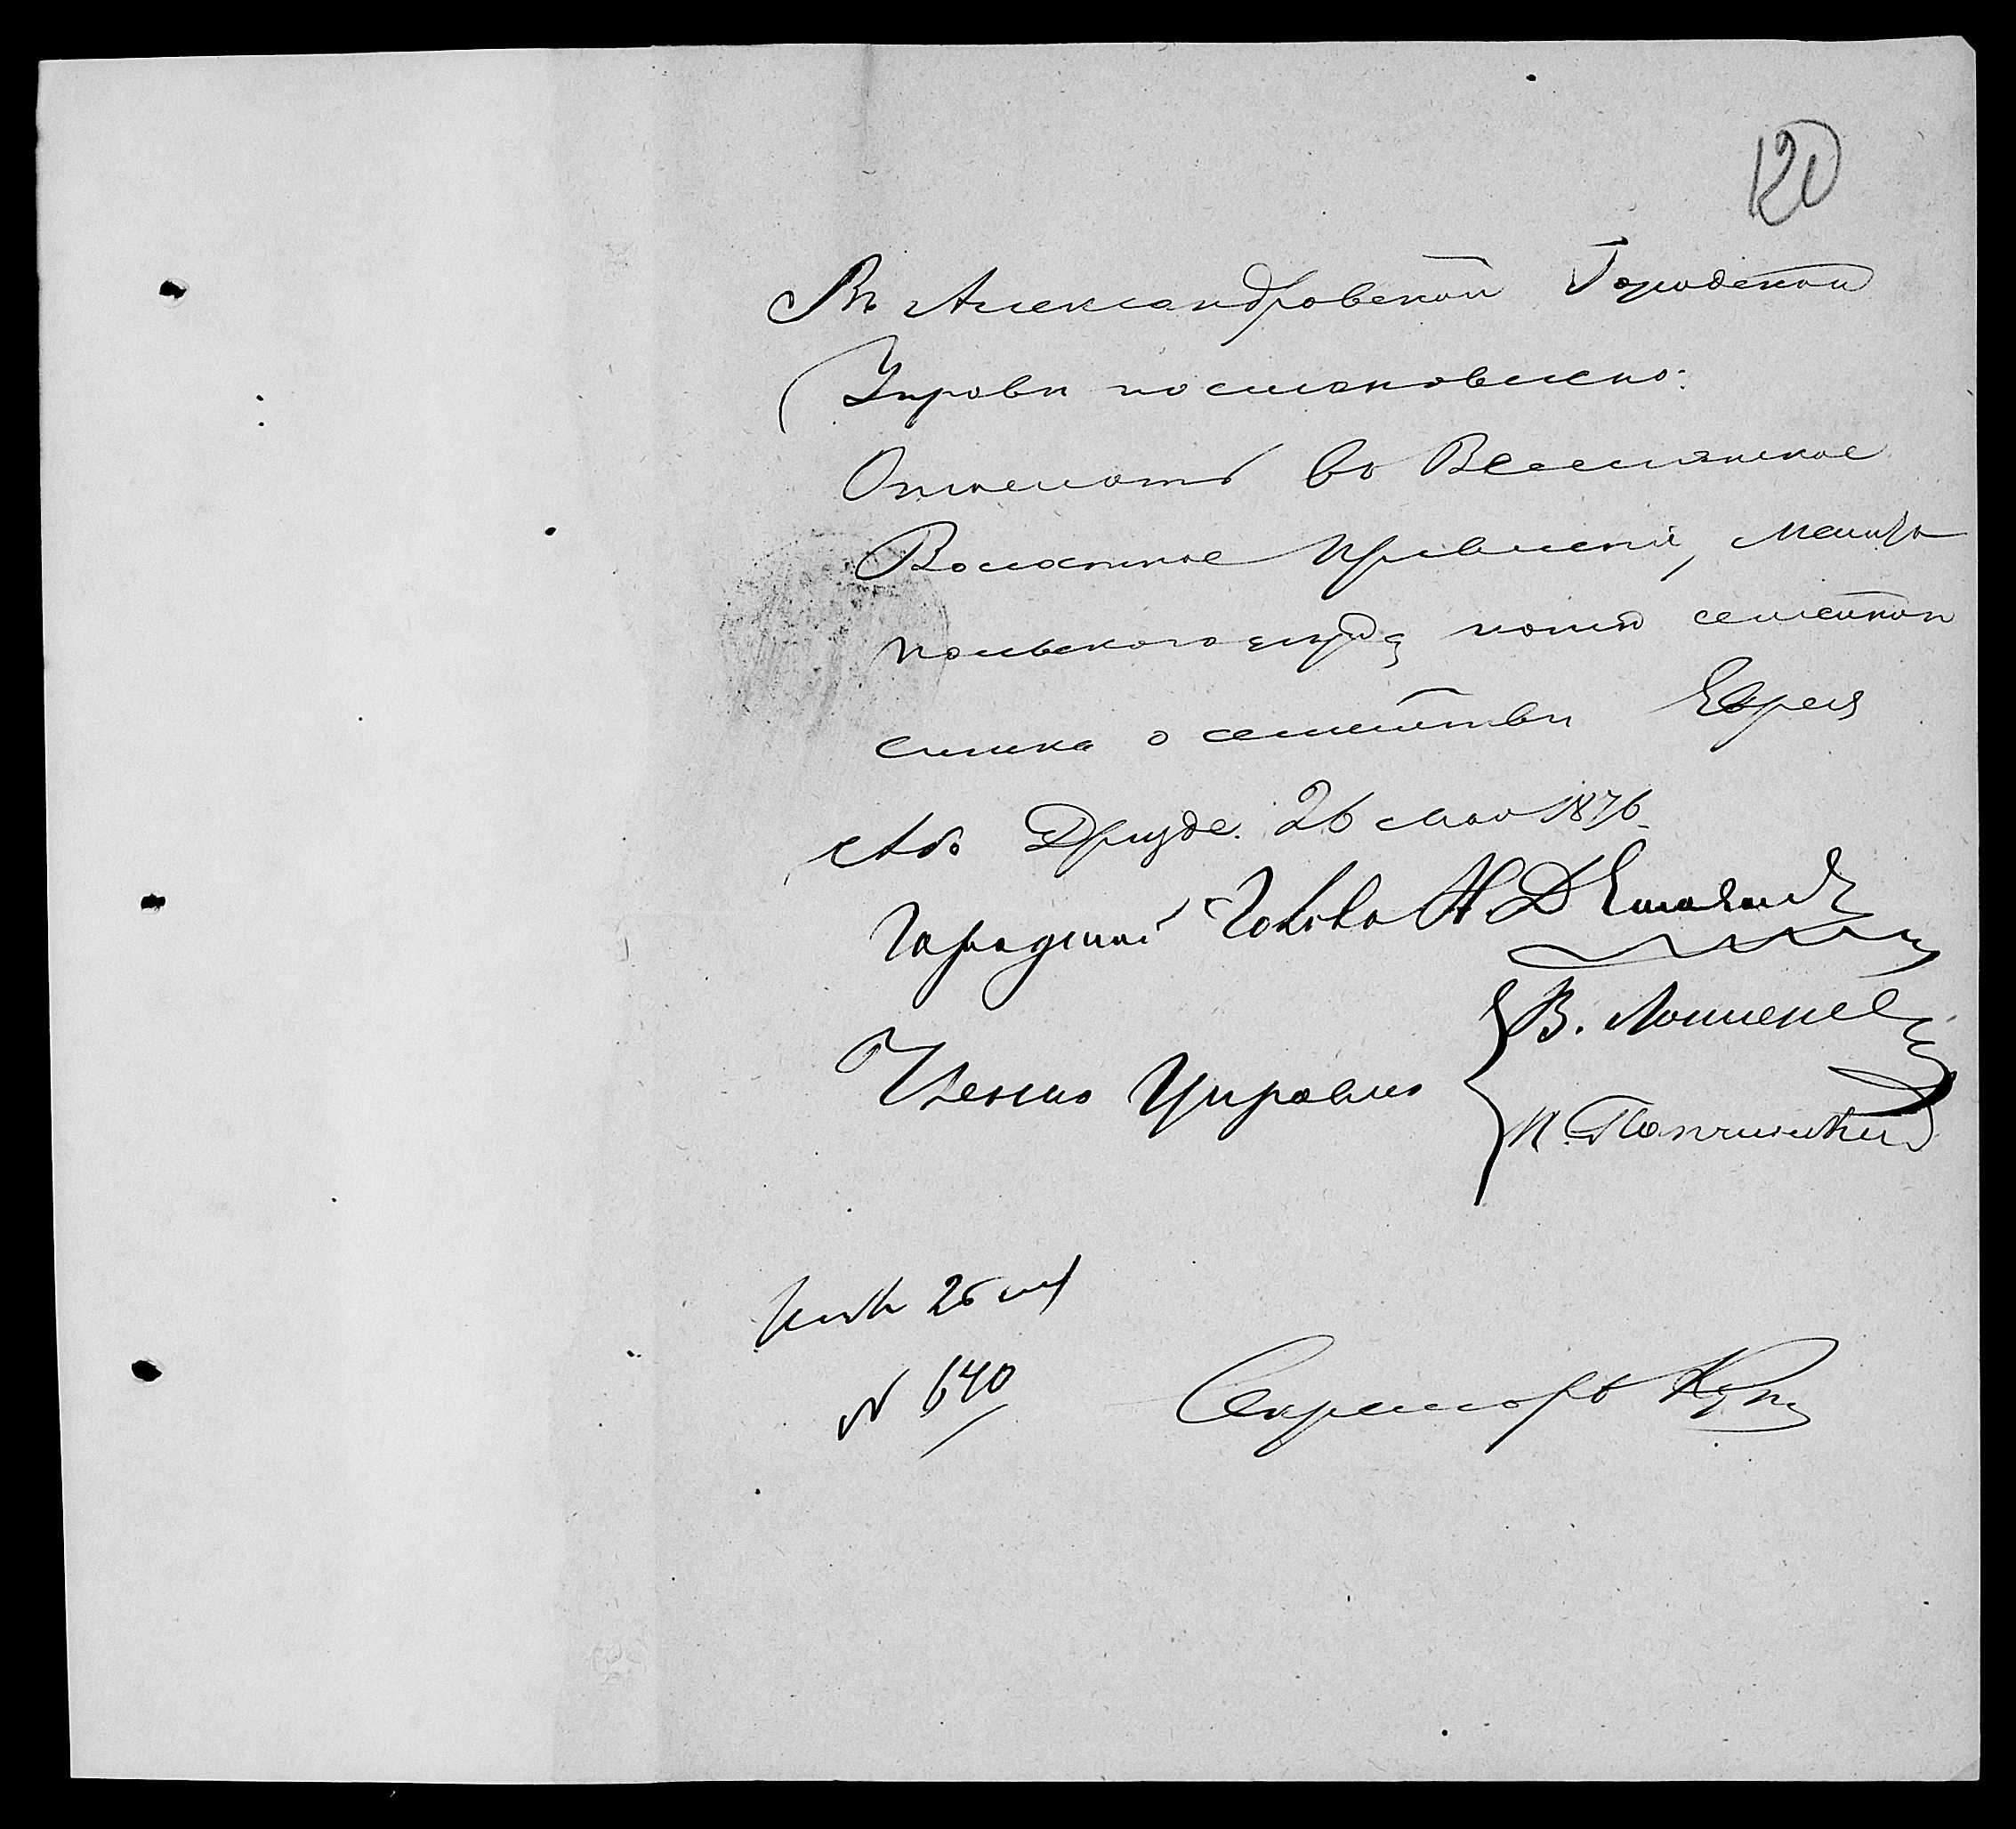 120
Въ Александровской Городской
Управѣ постановлено:
Отослать въ Веселянское
Волостное Правленіе, Мелито
польского уезда копію семейнаго
списка о семействѣ Еврея
Аб. Друзе. 26 мая 1876
Городской Голова Н. Д.
Члены Управы
В.
П.
26 мая
№ 640
Секретарь